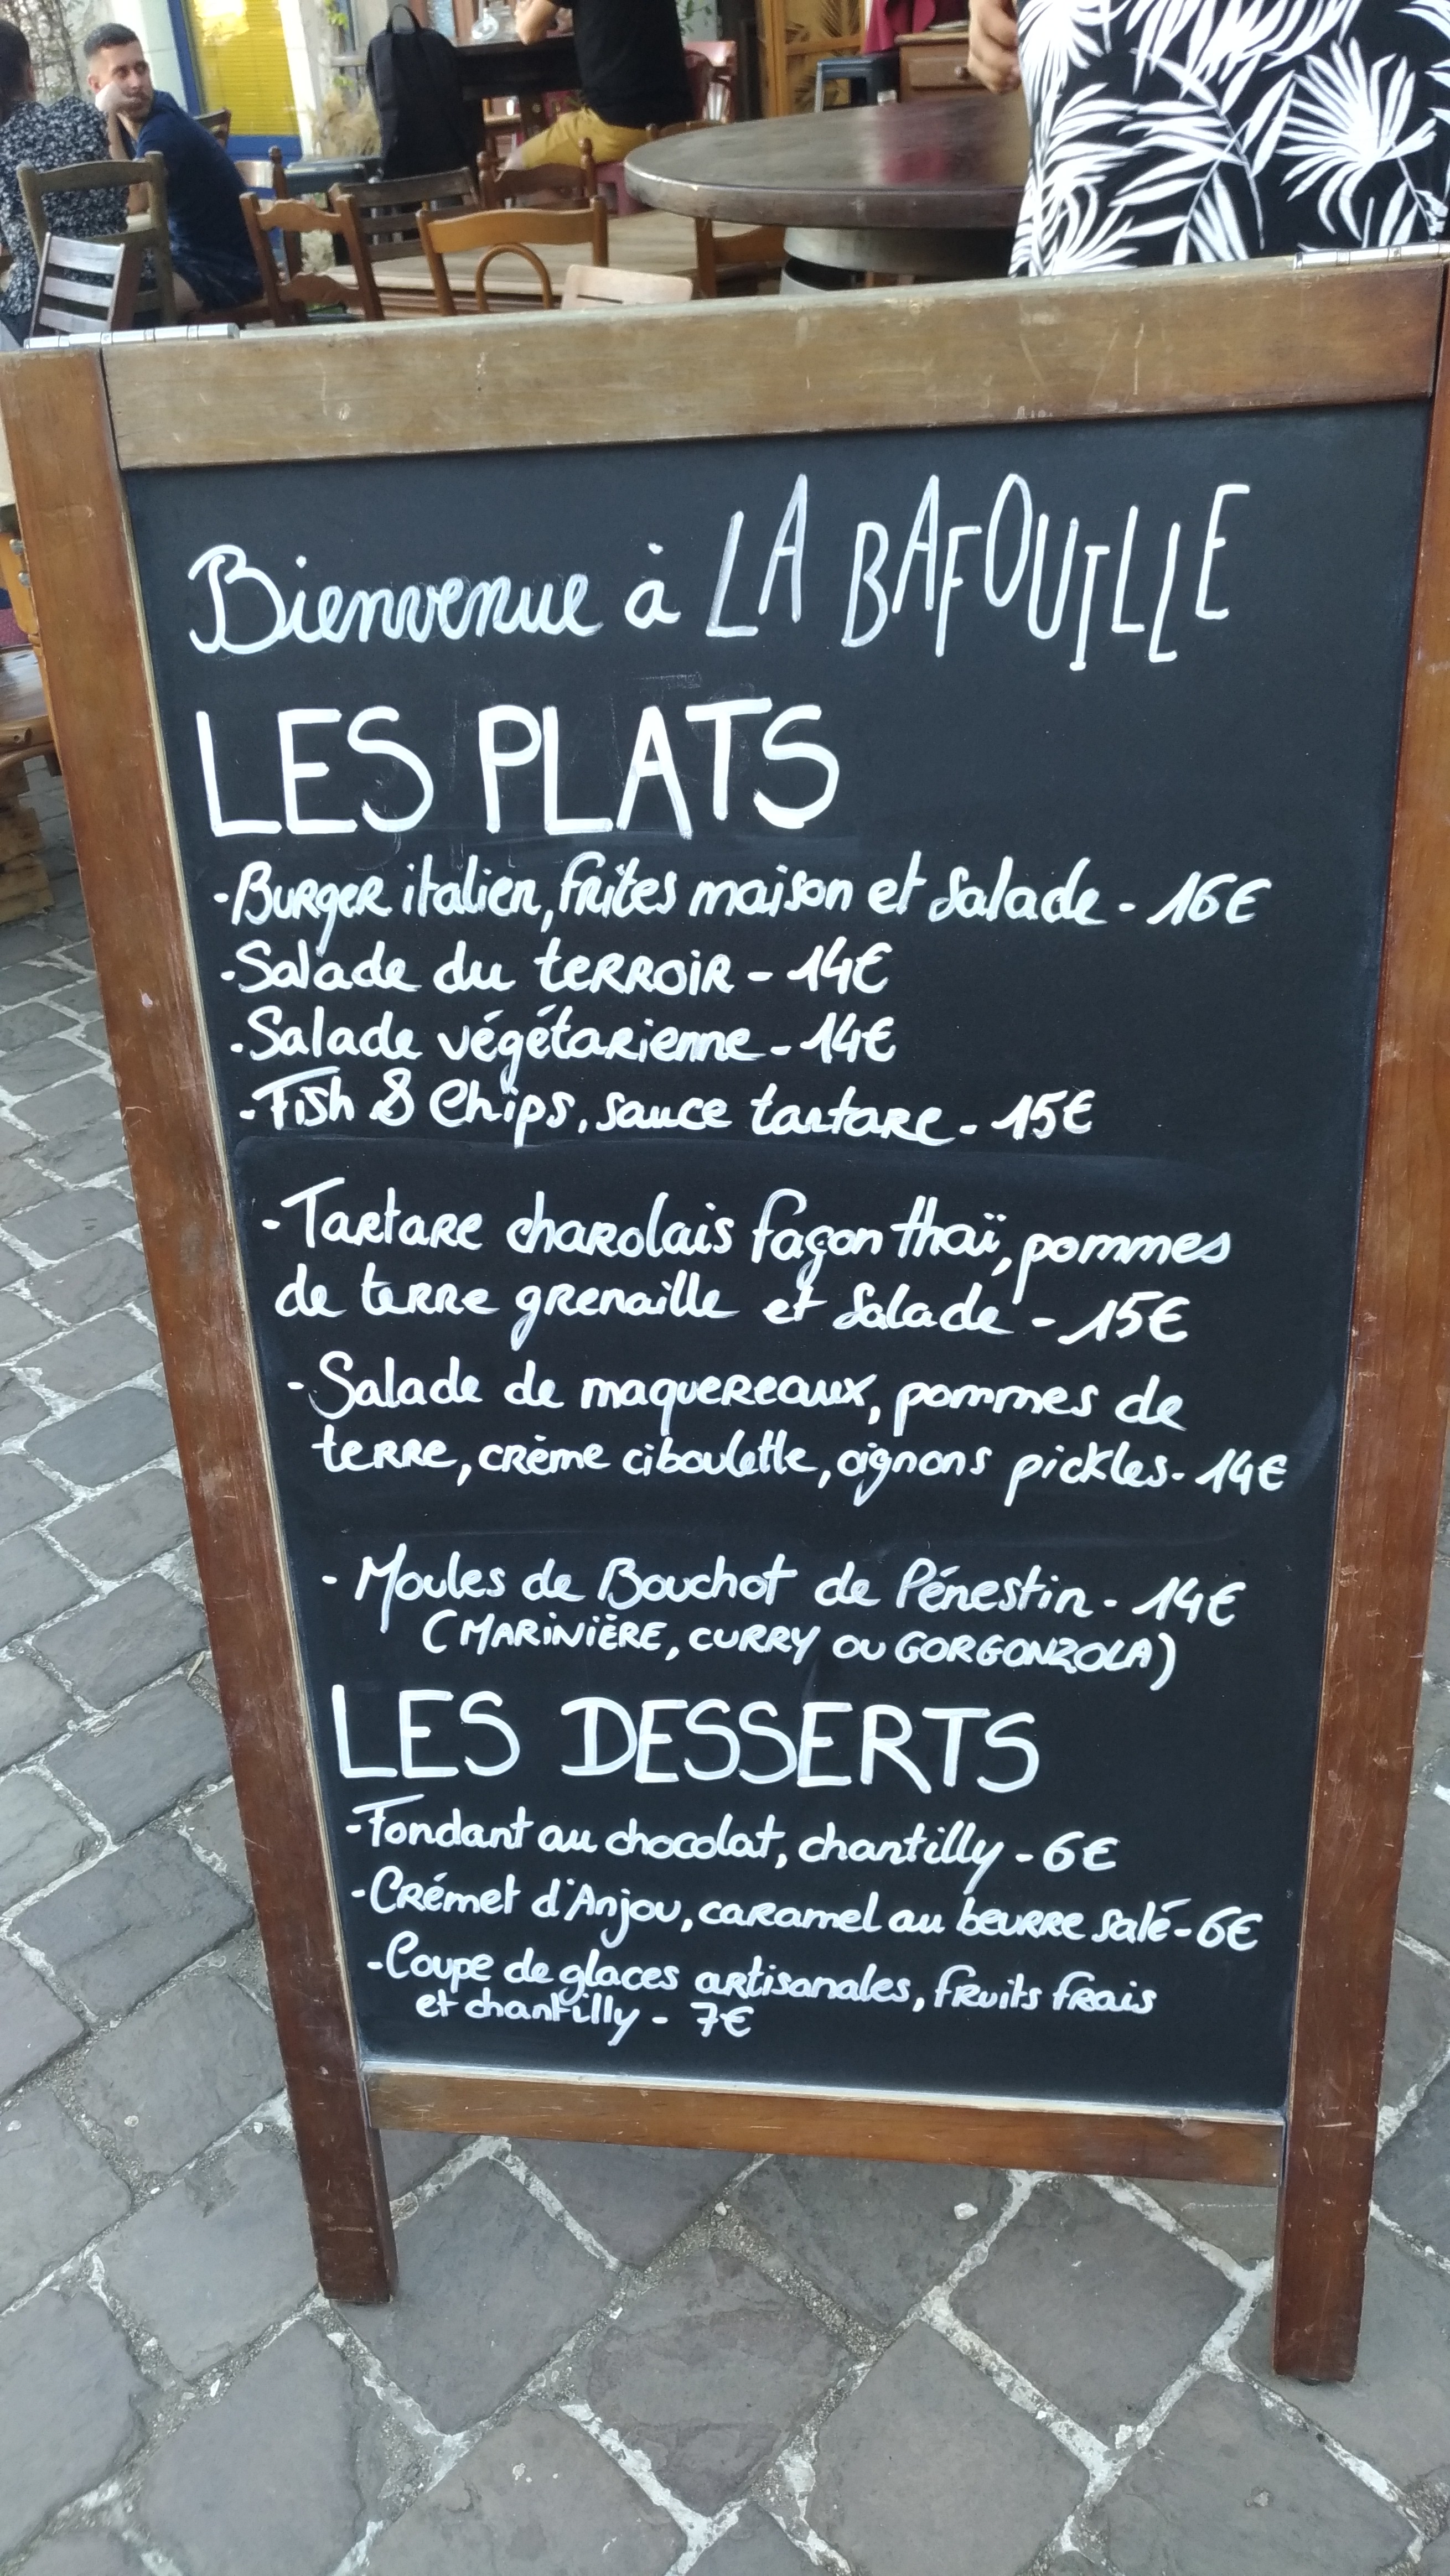 Bienvenue à LA BAFOUILLE
LES PLATS
-Burger italien, frites maison et Salade - 16€
-Salade du terroir - 14€
-Salade végétarienne - 14€
-Fish & Chips, sauce tartare - 15€
-Tartare charolais façon thaï, pommes
de terre grenaille et Salade - 15€
-Salade de maquereaux, pommes de
terre, crème ciboulette, oignons pickles - 14€
- Moules de Bouchot de Pénestin - 14€
(MARINIÈRE, CURRY OU GORGONZOLA)
LES DESSERTS
-Fondant au chocolat, chantilly - 6€
-Crémet d'Anjou, caramel au beurre salé - 6€
-Coupe de glaces artisanales, fruits frais
et chantilly - 7€